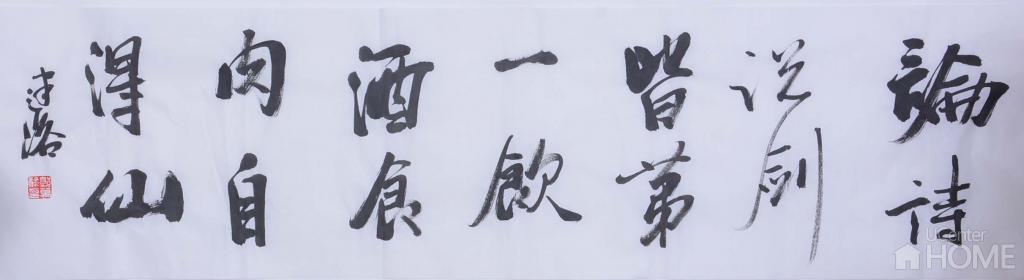 論詩
说劍
皆第
一飲
酒食
肉自
得仙
Ucenter
HOME